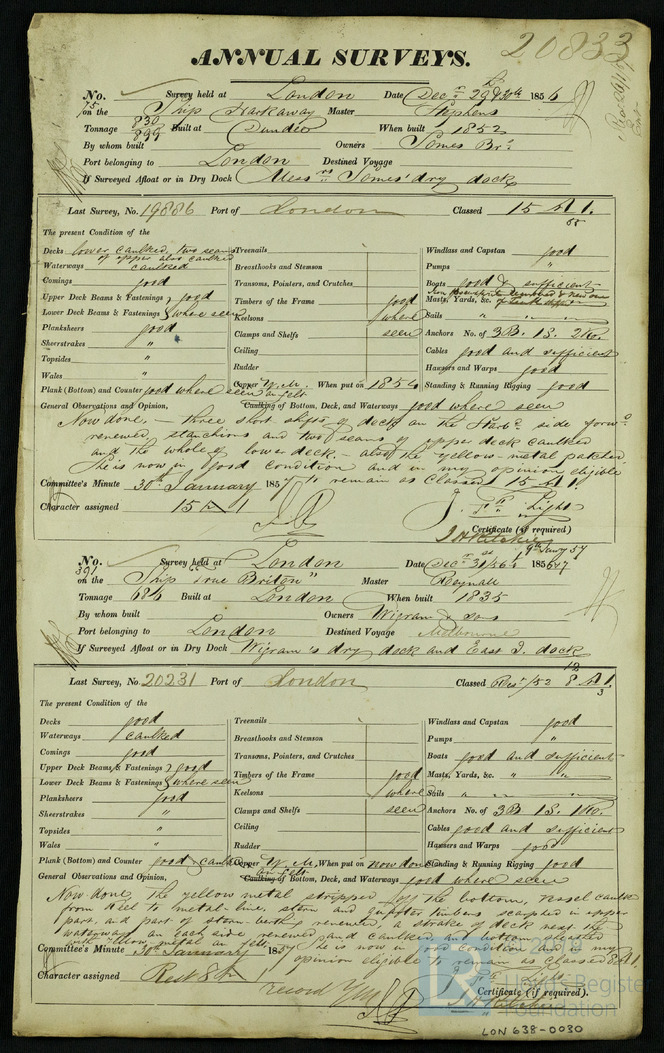 20833
ANNUAL SURVEYS.
No. Survey held at London Date Decr 29 & 30th 1856
75 on the Ship Harkaway Master Stephens
Tonnage 830 899 Built at Dundee When built 1852
By whom built Owners Somes Brs
Port belonging to London Destined Voyage
If Surveyed Afloat or in Dry Dock Messrs Somes' dry dock
Last Survey, No. 19886 Port of London Classed 15 A 1.
The present Condition of the
Decks lower caulked, two seams of upper also caulked
Waterways caulked
Comings good
Upper Deck Beams & Fastenings good
Lower Deck Beams & Fastenings where seen
Planksheers good
Sheerstrakes "
Topsides "
Wales "
Plank (Bottom) and Counter good where seen
Treenails
Breasthooks and Stemson
Transoms, Pointers, and Crutches
Timbers of the Frame good
Keelsons where
Clamps and Shelfs seen
Ceiling
Rudder
Copper Y.M. on felt When put on 1854
Windlass and Capstan good
Pumps "
Boats good & sufficient
Masts, Yards, &c.
Sails " " "
Anchors No. of 3B. 1S. 2Ke.
Cables good and sufficient
Hausers and Warps good
Standing & Running Rigging good
General Observations and Opinion, Caulking of Bottom, Deck, and Waterways good where seen
Now done, – three short shifts of deck on the Starbd side forwd
renewed, stanchions and two seams of upper deck caulked
and the whole of lower deck – also the yellow-metal patched,
She is now in good condition and in my opinion eligible
to remain as classed 15 A 1.
Committee's Minute 30th January 1857
Character assigned 15 A 1
J. Light
Certificate (if required)
J H Ritchie
9th Jany 57
No. Survey held at London Date Decr 31/56 1856 & 7
391 on the Ship "True Briton" Master Roynall
Tonnage 646 Built at London When built 1835
By whom built Owners Wigram & Sons
Port belonging to London Destined Voyage Melbourne
If Surveyed Afloat or in Dry Dock Wigram's dry dock and East I. dock
Last Survey, No. 20231 Port of London Classed Rest/52 8 A 1.
The present Condition of the
Decks good
Waterways caulked
Comings good
Upper Deck Beams & Fastenings good
Lower Deck Beams & Fastenings where seen
Planksheers good
Sheerstrakes "
Topsides "
Wales "
Plank (Bottom) and Counter good & caulked
Treenails
Breasthooks and Stemson
Transoms, Pointers, and Crutches
Timbers of the Frame good
Keelsons where
Clamps and Shelfs seen
Ceiling
Rudder
Copper Y.M. on felt When put on now done
Windlass and Capstan good
Pumps "
Boats good and sufficient
Masts, Yards, &c. " "
Sails " "
Anchors No. of 3B. 1S. 1Ke.
Cables good and sufficient
Hausers and Warps good
Standing & Running Rigging good
General Observations and Opinion, Caulking of Bottom, Deck, and Waterways good where seen
Now done the yellow metal stripped off the bottom, vessel caulkd
from keel to metal-line, stern and quarter timbers scarphed in upper
part, and part of stern-berths renewed, a strake of deck next the
waterways on each side renewed and caulked, and bottom sheathed
with yellow metal on felt, she is now in good condition and in my
opinion eligible to remain as classed 8 A 1
Committee's Minute 30th January 1857
Character assigned Rest 8 A
record YM
J. Light
Certificate (if required).
J H Ritchie
Lloyd's Register
Foundation
LON 638-0030